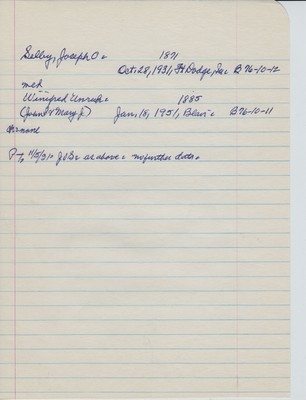 Selby, Joseph O. 1871
Oct. 28, 1931, Ft Dodge, Ia. B 76-10-12
meh
Winifred Unruh 1885
Jan. 15, 1951, Blair B76-10-11
none
11/5/31 as above no further data